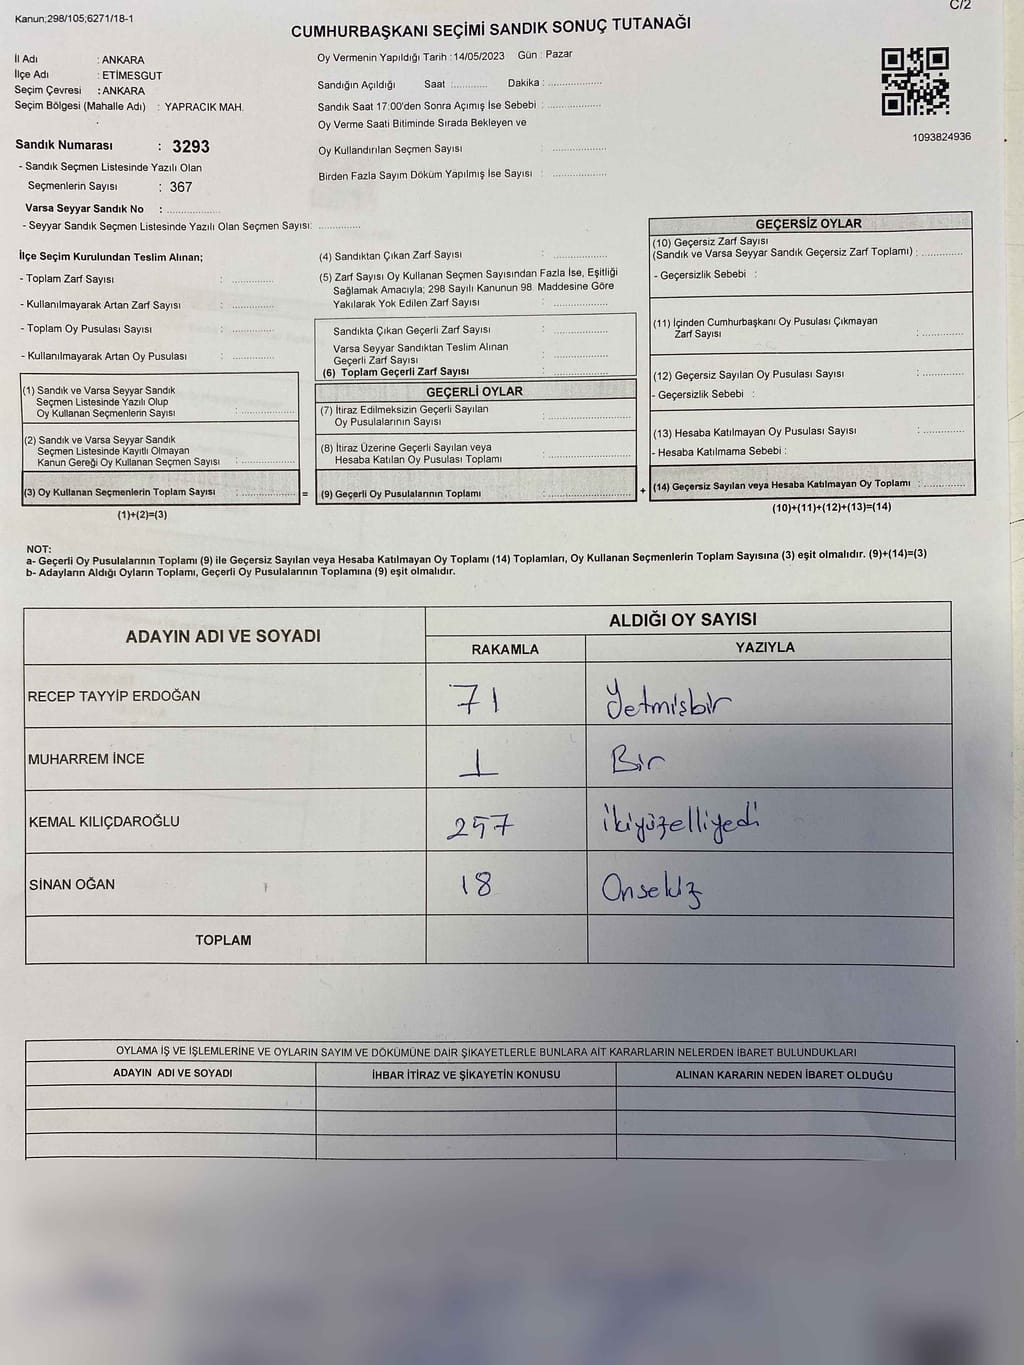 Kanun;298/105;6271/18-1
C/2
CUMHURBAŞKANI SEÇİMİ SANDIK SONUÇ TUTANAĞI
İl Adı : ANKARA
İlçe Adı : ETİMESGUT
Seçim Çevresi : ANKARA
Seçim Bölgesi (Mahalle Adı) : YAPRACIK MAH.
Sandık Numarası : 3293
- Sandık Seçmen Listesinde Yazılı Olan
Seçmenlerin Sayısı : 367
Varsa Seyyar Sandık No : ..................
- Seyyar Sandık Seçmen Listesinde Yazılı Olan Seçmen Sayısı: ..............
Oy Vermenin Yapıldığı Tarih : 14/05/2023 Gün : Pazar
Sandığın Açıldığı Saat : ............ Dakika : ..................
Sandık Saat 17:00'den Sonra Açımış İse Sebebi : ..................
Oy Verme Saati Bitiminde Sırada Bekleyen ve
Oy Kullandırılan Seçmen Sayısı : ..................
Birden Fazla Sayım Döküm Yapılmış İse Sayısı : ..................
1093824936
İlçe Seçim Kurulundan Teslim Alınan;
- Toplam Zarf Sayısı : ..............
- Kullanılmayarak Artan Zarf Sayısı : ..............
- Toplam Oy Pusulası Sayısı : ..............
- Kullanılmayarak Artan Oy Pusulası : ..............
(1) Sandık ve Varsa Seyyar Sandık
Seçmen Listesinde Yazılı Olup
Oy Kullanan Seçmenlerin Sayısı : ..................
(2) Sandık ve Varsa Seyyar Sandık
Seçmen Listesinde Kayıtlı Olmayan
Kanun Gereği Oy Kullanan Seçmen Sayısı : ..................
(3) Oy Kullanan Seçmenlerin Toplam Sayısı : ..................
(1)+(2)=(3)
=
(4) Sandıktan Çıkan Zarf Sayısı : ..................
(5) Zarf Sayısı Oy Kullanan Seçmen Sayısından Fazla İse, Eşitliği
Sağlamak Amacıyla; 298 Sayılı Kanunun 98. Maddesine Göre
Yakılarak Yok Edilen Zarf Sayısı : ..................
Sandıkta Çıkan Geçerli Zarf Sayısı : ..................
Varsa Seyyar Sandıktan Teslim Alınan
Geçerli Zarf Sayısı : ..................
(6) Toplam Geçerli Zarf Sayısı : ..................
GEÇERLİ OYLAR
(7) İtiraz Edilmeksizin Geçerli Sayılan
Oy Pusulalarının Sayısı : ..................
(8) İtiraz Üzerine Geçerli Sayılan veya
Hesaba Katılan Oy Pusulası Toplamı : ..................
(9) Geçerli Oy Pusulalarının Toplamı : ..................
+
GEÇERSİZ OYLAR
(10) Geçersiz Zarf Sayısı
(Sandık ve Varsa Seyyar Sandık Geçersiz Zarf Toplamı) : ..............
- Geçersizlik Sebebi :
(11) İçinden Cumhurbaşkanı Oy Pusulası Çıkmayan
Zarf Sayısı : ..............
(12) Geçersiz Sayılan Oy Pusulası Sayısı : ..............
- Geçersizlik Sebebi :
(13) Hesaba Katılmayan Oy Pusulası Sayısı : ..............
- Hesaba Katılmama Sebebi :
(14) Geçersiz Sayılan veya Hesaba Katılmayan Oy Toplamı : ..............
(10)+(11)+(12)+(13)=(14)
NOT:
a- Geçerli Oy Pusulalarının Toplamı (9) ile Geçersiz Sayılan veya Hesaba Katılmayan Oy Toplamı (14) Toplamları, Oy Kullanan Seçmenlerin Toplam Sayısına (3) eşit olmalıdır. (9)+(14)=(3)
b- Adayların Aldığı Oyların Toplamı, Geçerli Oy Pusulalarının Toplamına (9) eşit olmalıdır.
ADAYIN ADI VE SOYADI
ALDIĞI OY SAYISI
RAKAMLA YAZIYLA
RECEP TAYYİP ERDOĞAN 71 Yetmişbir
MUHARREM İNCE 1 Bir
KEMAL KILIÇDAROĞLU 257 İkiyüzelliyedi
SİNAN OĞAN 18 Onsekiz
TOPLAM
OYLAMA İŞ VE İŞLEMLERİNE VE OYLARIN SAYIM VE DÖKÜMÜNE DAİR ŞİKAYETLERLE BUNLARA AİT KARARLARIN NELERDEN İBARET BULUNDUKLARI
ADAYIN ADI VE SOYADI İHBAR İTİRAZ VE ŞİKAYETİN KONUSU ALINAN KARARIN NEDEN İBARET OLDUĞU